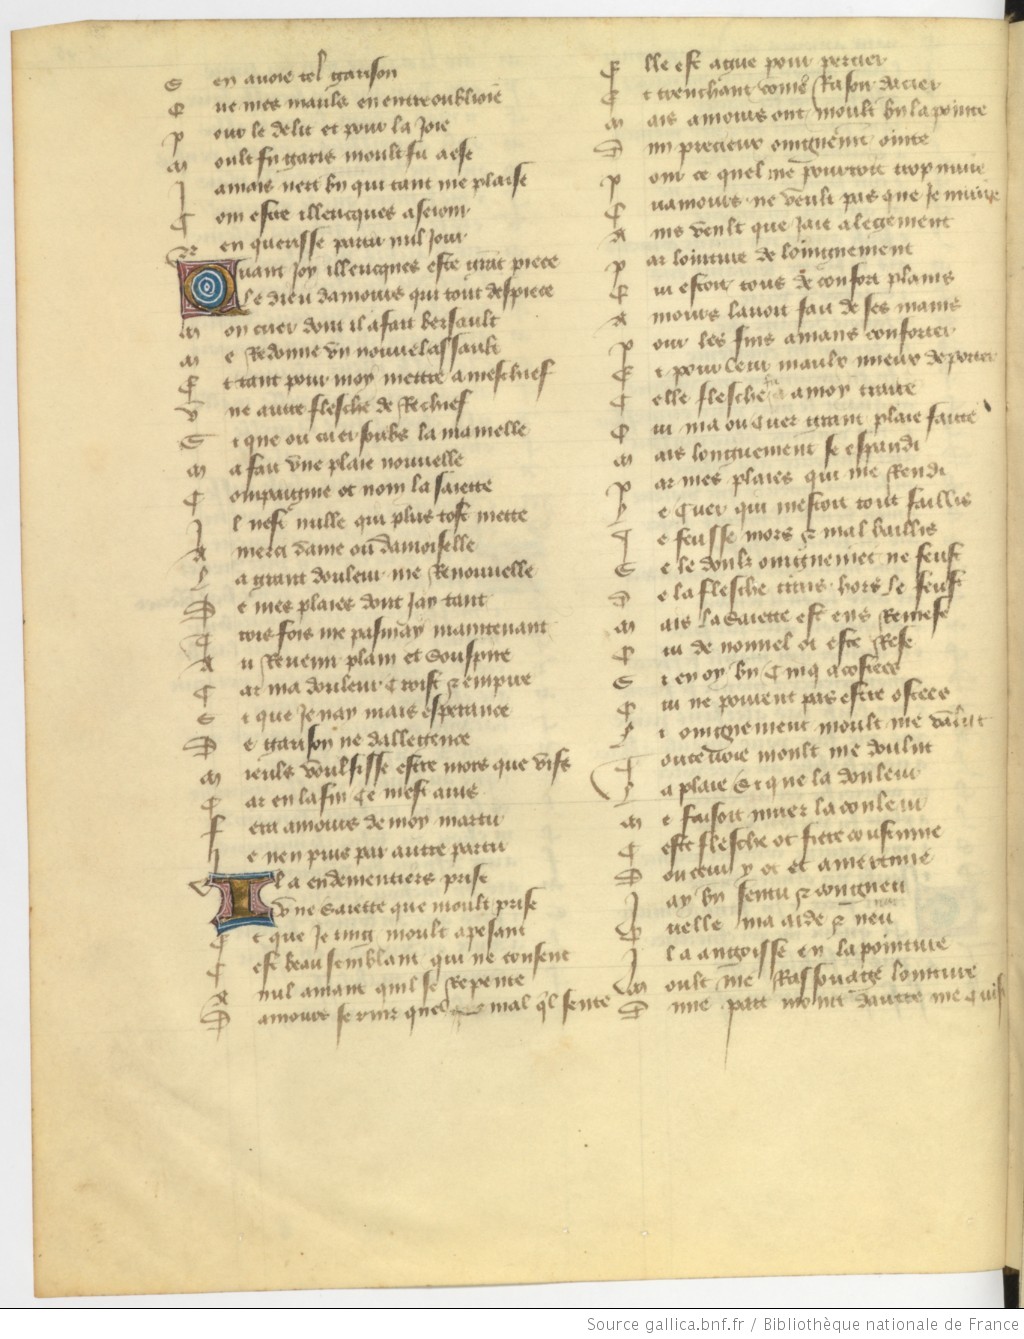 S en avoie tel garison
Q ue mes maulx en entroublioie
P our le delit et pour la Joie
M oult fu garis moult fu aese
J amais neri bn qui tant me plaise
C om estre illeucques a seiour
N en queisse partir nul jour
Quant joy illeucques este grāt piece
Le dieu damours qui tout despiece
M on cuer dont il a fait bersault
M e Redonne vn nouuel assault
E t tant pour moy mettre a meschief
V ne autre flesche de Rechief
S i que ou cuer soubz la mamelle
M a fait vne plaie nouuelle
C ompaignie ot nom la saiette
J l nest nulle qui plus tost mette
A merci dame ou damoiselle
L a grant douleur me Renouuelle
D e mes plaies dont jay tant
T rois fois me pasmay maintenant
A u Reuenir plain et souspire
C ar ma douleur croist & empire
S i que Je nay mais esperance
D e garison ne dallegence
M ieulx voulsisse estre mors que vifz
C ar en la fin ce mest auis
F era amours de moy martir
J e nen puis par autre partir
Il a endementiers prise
vne saiette que moult prise
E t que Je ting moult apesant
C est beau semblant qui ne consent
A nul amant quil se Repente
D amours seruir mal ql sente
E lle est ague pour percier
E t trenchant come Rasoir dacier
M ais amours ont moult bn la pointe
D un precieux oingnement ointe
P our ce quel me pourroit trop nuire
Q uamours ne veult pas que Je muire
A ins veult que jaie alegement
P ar lointure de loingnement
Q ui estoit tous de confort plains
A mours lauoit fait de ses mains
P our les fins amans conforter
E t pour leur maulx mieux deporter
C elle flesche a a moy traite
Q ui ma ou cuer grant plaie faitte
M ais longuement se espandi
P ar mes plaies qui me Rendi
L e cuer qui mestoit tout faillis
J e feusse mors & mal baillis
S e le doulx oingnement ne feust
D e la flesche tirais hors le feust
M ais la saiette est ens Remese
Q ui de nouuel ot este Rese
S i en oy bn Cinq acostees
Q ui ne pouuent pas estre ostees
L i oingnement moult me valut
T outeuoie moult me dolut
L a plaie si que la douleur
M e faisoit muer la couleur
C este flesche ot fiere coustume
D ouceur y ot et amertume
J ay bn sentu & congneu
Q uelle ma aidé & neu
J l a angoisse en la pointure
M oult me Rassouage lointure
D une part moint dautre me cuist